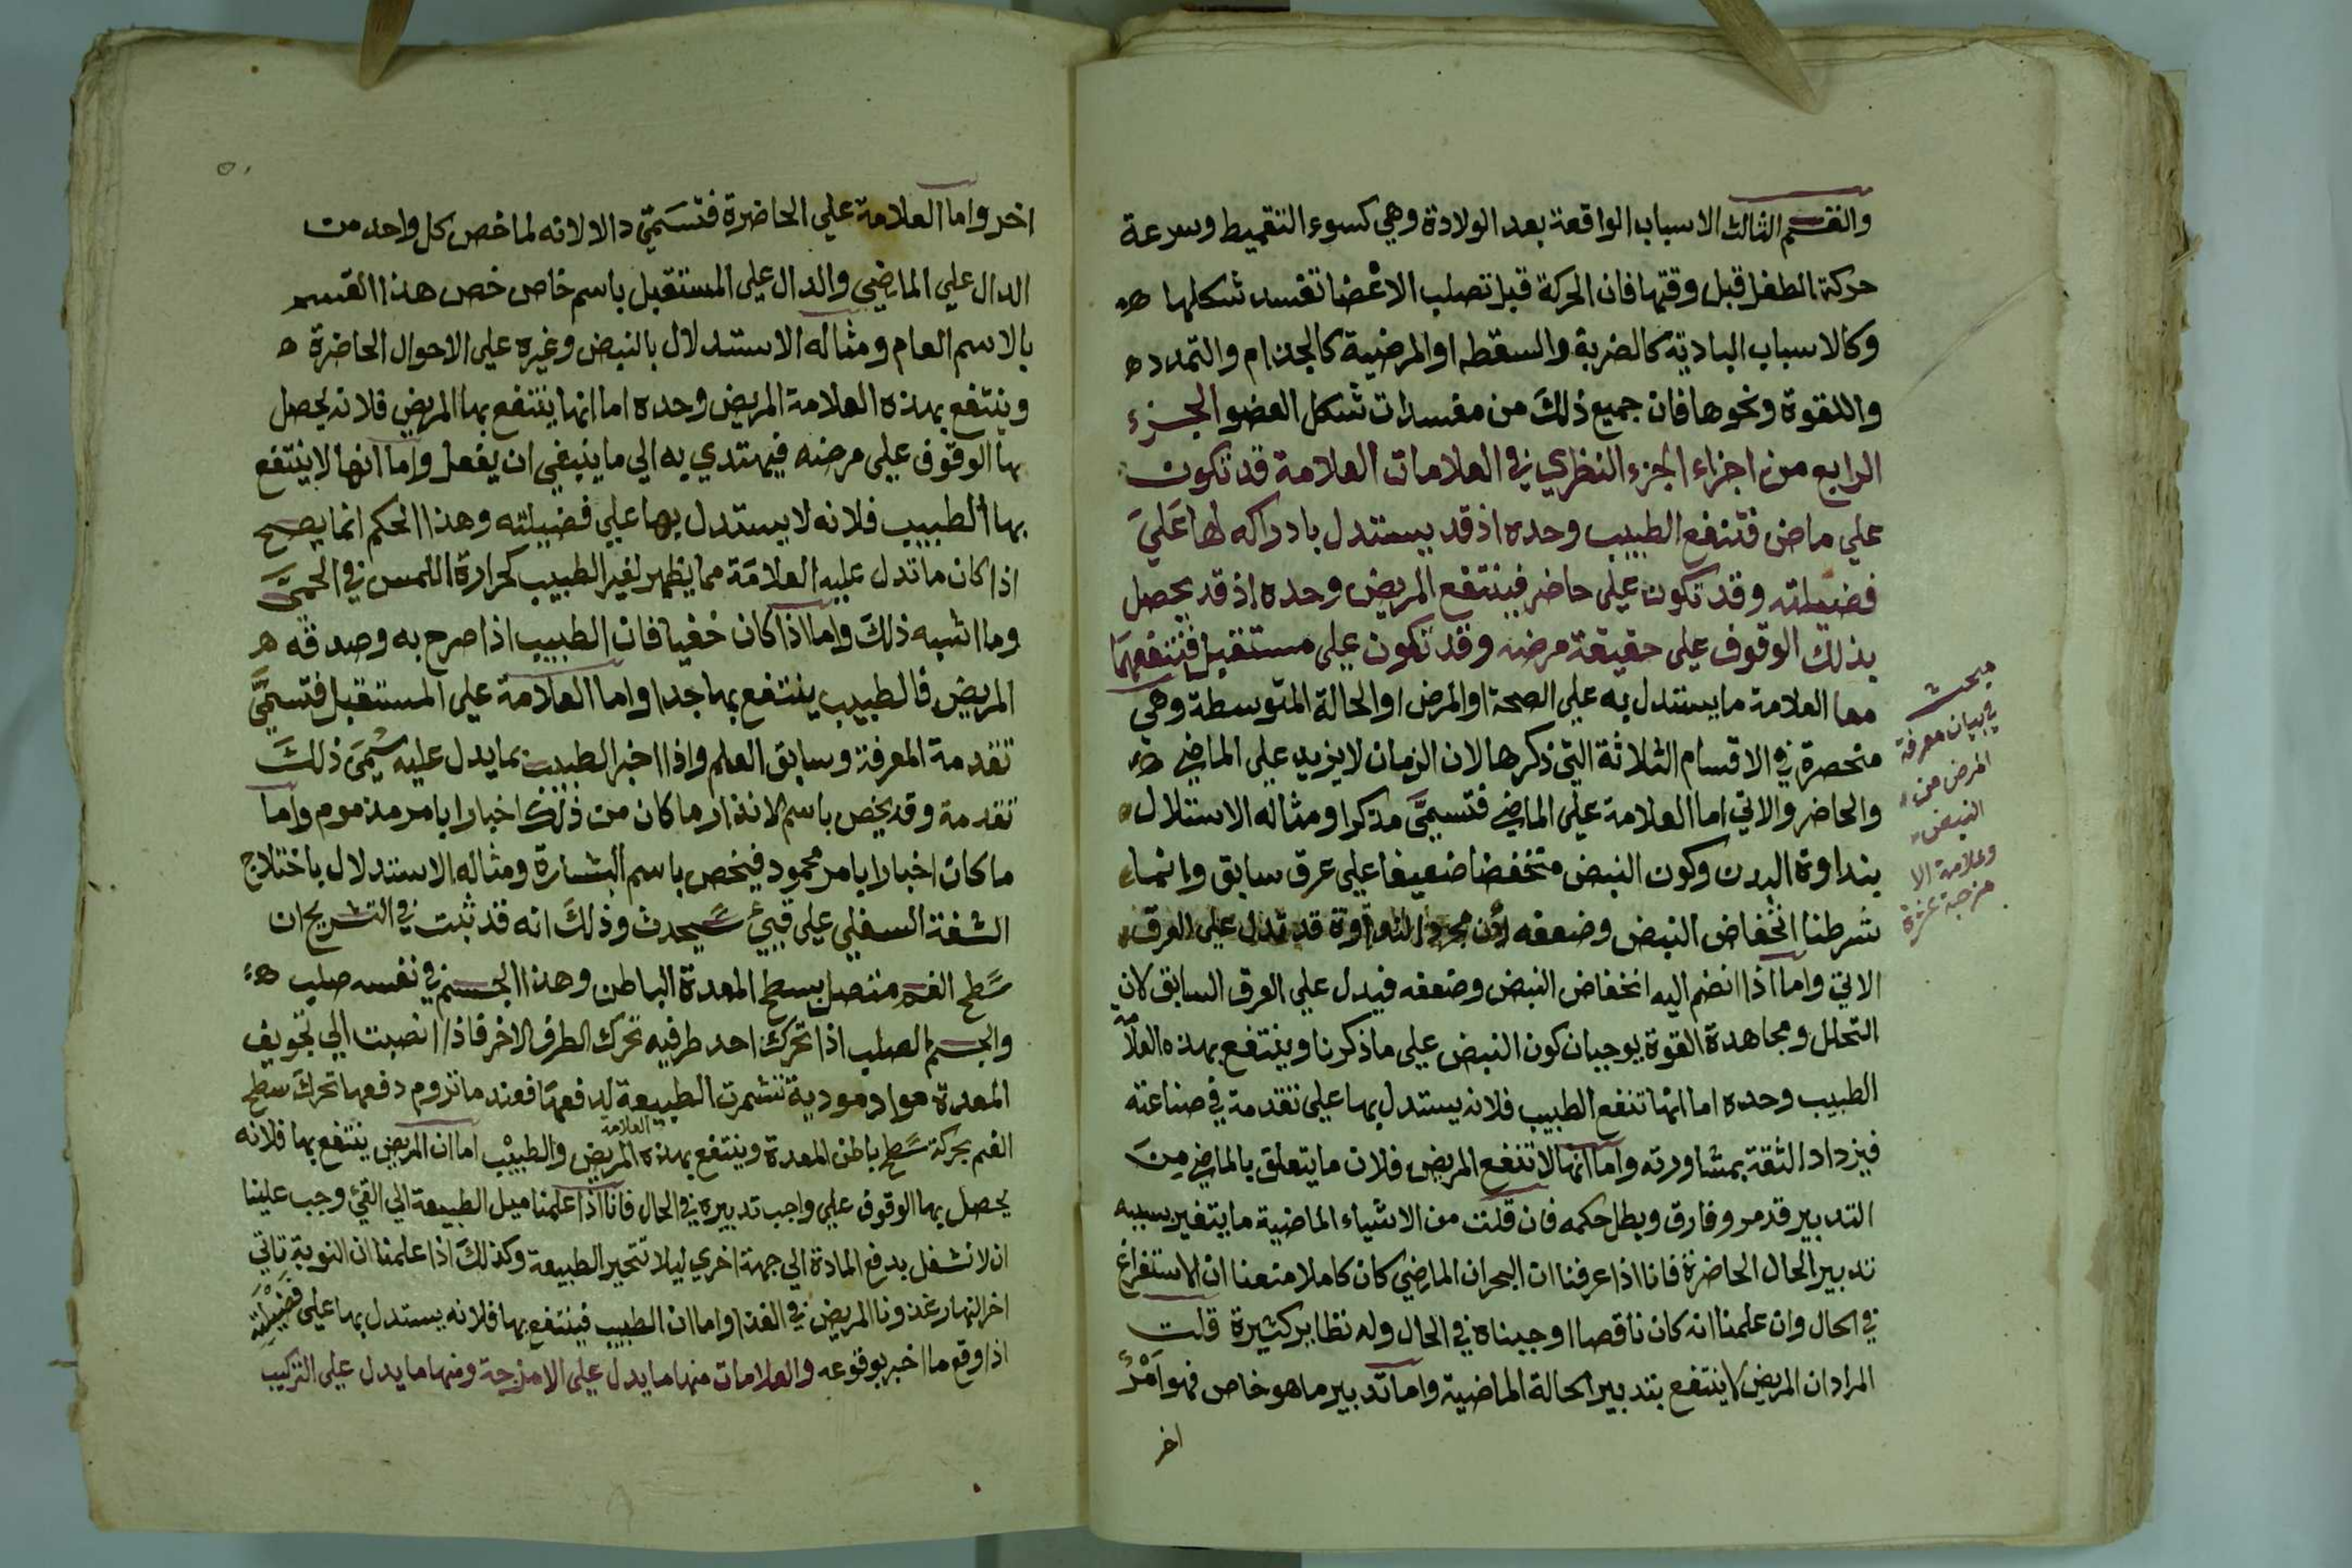 والقسم الثالث الاسباب الواقعة بعد الولادة وهي كسوء التقميط وسرعة
حركة الطفل قبل وقتها فان الحركة قبل تصلب الاعضا تفسد شكلها ه
وكالاسباب البادية كالضربة والسقطه او المرضية كالجذام والتمدد ه
واللقوة ونحوها فان جميع ذلك من مفسدات شكل العضو الجزء
الرابع من اجزاء الجزء النظري في العلامات العلامة قد تكون
علي ماض فتنفع الطبيب وحده اذ قد يستدل بادراكه لها علي
فضيلته وقد تكون علي حاضر فينتفع المريض وحده اذ قد يحصل
بذلك الوقوف علي حقيقة مرضه وقد تكون علي مستقبل فتنفعهما
معا العلامة ما يستدل به علي الصحة او المرض او الحالة المتوسطة وهي
منحصرة في الاقسام الثلاثة التي ذكرها لان الزمان لا يزيد علي الماضي
والحاضر والاتي اما العلامة علي الماضي فتسمي مذكرا ومثاله الاستدلال
بنداوة البدن وكون النبض منخفضا ضعيفا علي عرق سابق وانما
شرطنا انخفاض النبض وضعفه لان مجرد النداوة قد تدل علي العرق
الاتي واما اذا انضم اليه انخفاض النبض وضعفه فيدل علي العرق السابق لان
التحلل ومجاهدة القوة يوجبان كون النبض علي ما ذكرنا وينتفع بهذه العلامة
الطبيب وحده اما انها تنفع الطبيب فلانه يستدل بها علي تقدمة في صناعته
فيزداد الثقة بمشاورته واما انها لا تنفع المريض فلان ما يتعلق بالماضي من
التدبير قد مر وفارق وبطل حكمه فان قلت من الاشياء الماضية ما يتغير بسببه
تدبير الحال الحاضرة فانا اذا عرفنا ان البحران الماضي كان كاملا منعنا ان الاستفراغ
في الحال وان علمنا انه كان ناقصا اوجبناه في الحال وله نظاير كثيرة قلت
المراد ان المريض لا ينتفع بتدبير الحالة الماضية واما تدبير ما هو خاص فهو امر
اخر
مبحث
في بيان معرفة
المرض من
النبض
وعلامة الا
مزجة
اخر واما العلامة علي الحاضرة فتسمي دالا لانه لما خص كل واحد من
الدال علي الماضي والدال علي المستقبل باسم خاص خص هذا القسم
بالاسم العام ومثاله الاستدلال بالنبض وغيره علي الاحوال الحاضرة ه
وينتفع بهذه العلامة المريض وحده اما انها ينتفع بها المريض فلانه يحصل
بها الوقوف علي مرضه فيهتدي به الي ما ينبغي ان يفعل واما انها لا ينتفع
بها الطبيب فلانه لا يستدل بها علي فضيلته وهذا الحكم انما يصح
اذا كان ما تدل عليه العلامة مما يظهر لغير الطبيب كحرارة اللمس في الحمي
وما اشبه ذلك واما اذا كان خفيا فان الطبيب اذا صرح به وصدقه ه
المريض فالطبيب ينتفع بها جدا واما العلامة علي المستقبل فتسمي
تقدمة المعرفة وسابق العلم واذا اخبر الطبيب بما يدل عليه سمي ذلك
تقدمة وقد يخص باسم الانذار ما كان من ذلك اخبارا بامر مذموم واما
ما كان اخبارا بامر محمود فيخص باسم البشارة ومثاله الاستدلال باختلاج
الشفة السفلي علي قيئ سيحدث وذلك انه قد ثبت في التشريح ان
سطح الفم متصل بسطح المعدة الباطن وهذا الجسم في نفسه صلب ه
والجسم الصلب اذا تحرك احد طرفيه تحرك الطرف الاخر فاذا انصبت الي تجويف
المعدة مواد موذية تشمرت الطبيعة لدفعها فعند ما تروم دفعها تحرك سطح
الفم بحركة سطح باطن المعدة وينتفع بهذه العلامة المريض والطبيب اما ان المريض ينتفع بها فلانه
يحصل بها الوقوف علي واجب تدبيره في الحال فانا اذا علمنا ميل الطبيعة الي القيئ وجب علينا
ان لا نشغل بدفع المادة الي جهة اخري ليلا تتحير الطبيعة وكذلك اذا علمنا ان النوبة تاتي
اخر النهار غذونا المريض في الغدا واما ان الطبيب فينتفع بها فلانه يستدل بها علي فضيلته
اذا وقع ما اخبر بوقوعه والعلامات منها ما يدل علي الامزجة ومنها ما يدل علي التركيب